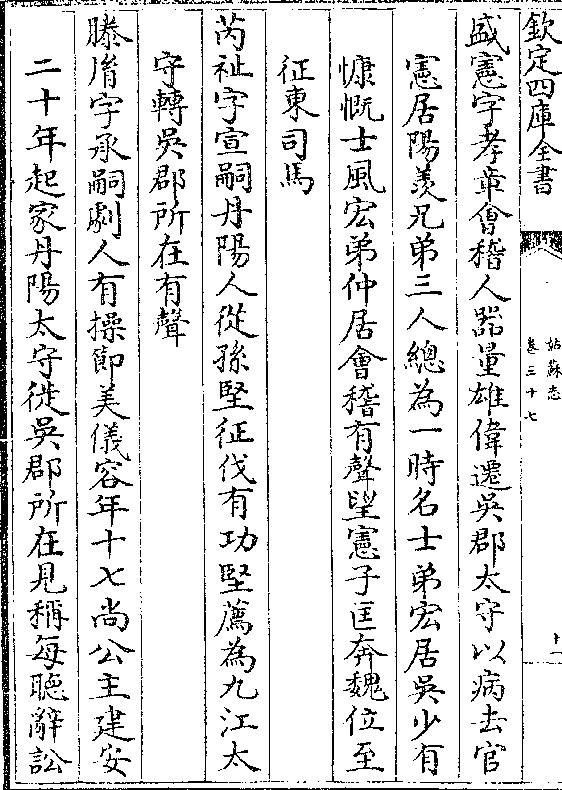 欽定四庫全書
姑蘇志
卷三十七
十一
盛憲字孝章會稽人器量雄偉遷吳郡太守以病去官
憲居陽羨兄弟三人總為一時名士弟宏居吳少有
慷慨士風宏弟仲居會稽有聲望憲子匡奔魏位至
征東司馬
芮祉字宣嗣丹陽人從孫堅征伐有功堅薦為九江太
守轉吳郡所在有聲
滕胤字承嗣劇人有操節美儀容年十七尚公主建安
二十年起家丹陽太守徙吳郡所在見稱每聽辭訟